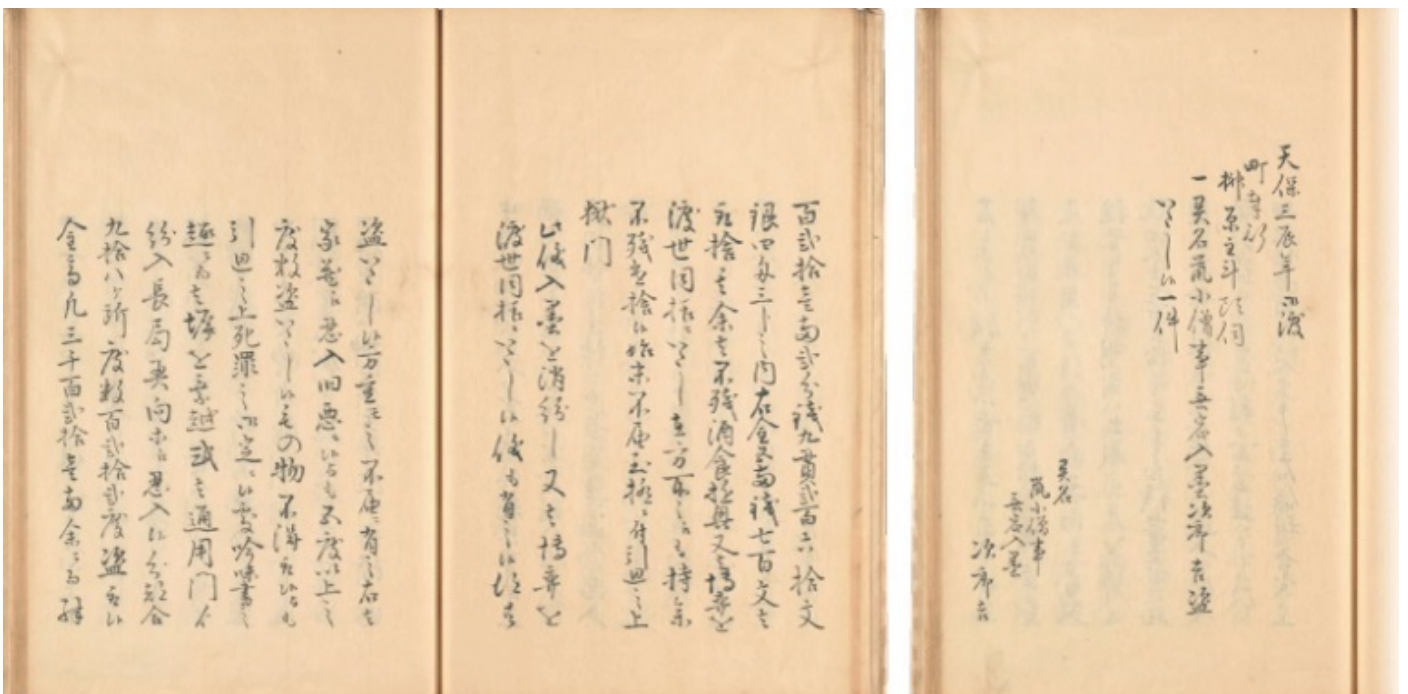 天保三辰年御渡
町奉行
榊原主計頭伺
一異名鼠小僧事無宿入墨次郎吉盗
いたし候一件
異名
鼠小僧事
無宿入墨
次郎吉
百弐拾壱両弐分銭九貫弐百六拾文
銀四匁三分之内右金五両銭七百文者
取捨其余者不残酒食遊興又者博奕を
渡世同様ニいたし在方所々江も持参
不残遣捨候始末不届至極ニ付引廻之上
獄門
此儀入墨を消紛し又者博奕を
渡世同様ニいたし候儀も有之候得共
盗いたし候方重モ之不届ニ有之右者
家蔵江忍入旧悪ニ候とも五度以上之
度数盗いたし候もの物不得取候とも
引廻之上死罪之御定ニ候処吟味書之
趣ニ而者塀を乗越或者通用門ゟ
紛入長局奥向等江忍入候分都合
九拾八ヶ所度数百弐拾弐度盗取候
金高凡三千百弐拾壱両余ニ而殊